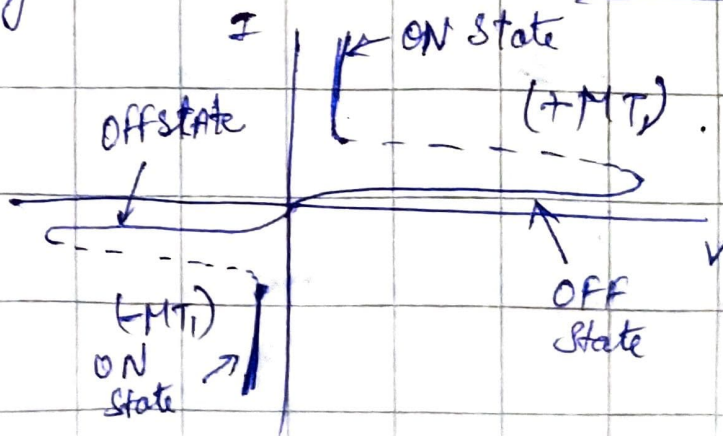 I
ON State
(+MT₁)
Offstate
V
OFF
State
(-MT₁)
ON
State